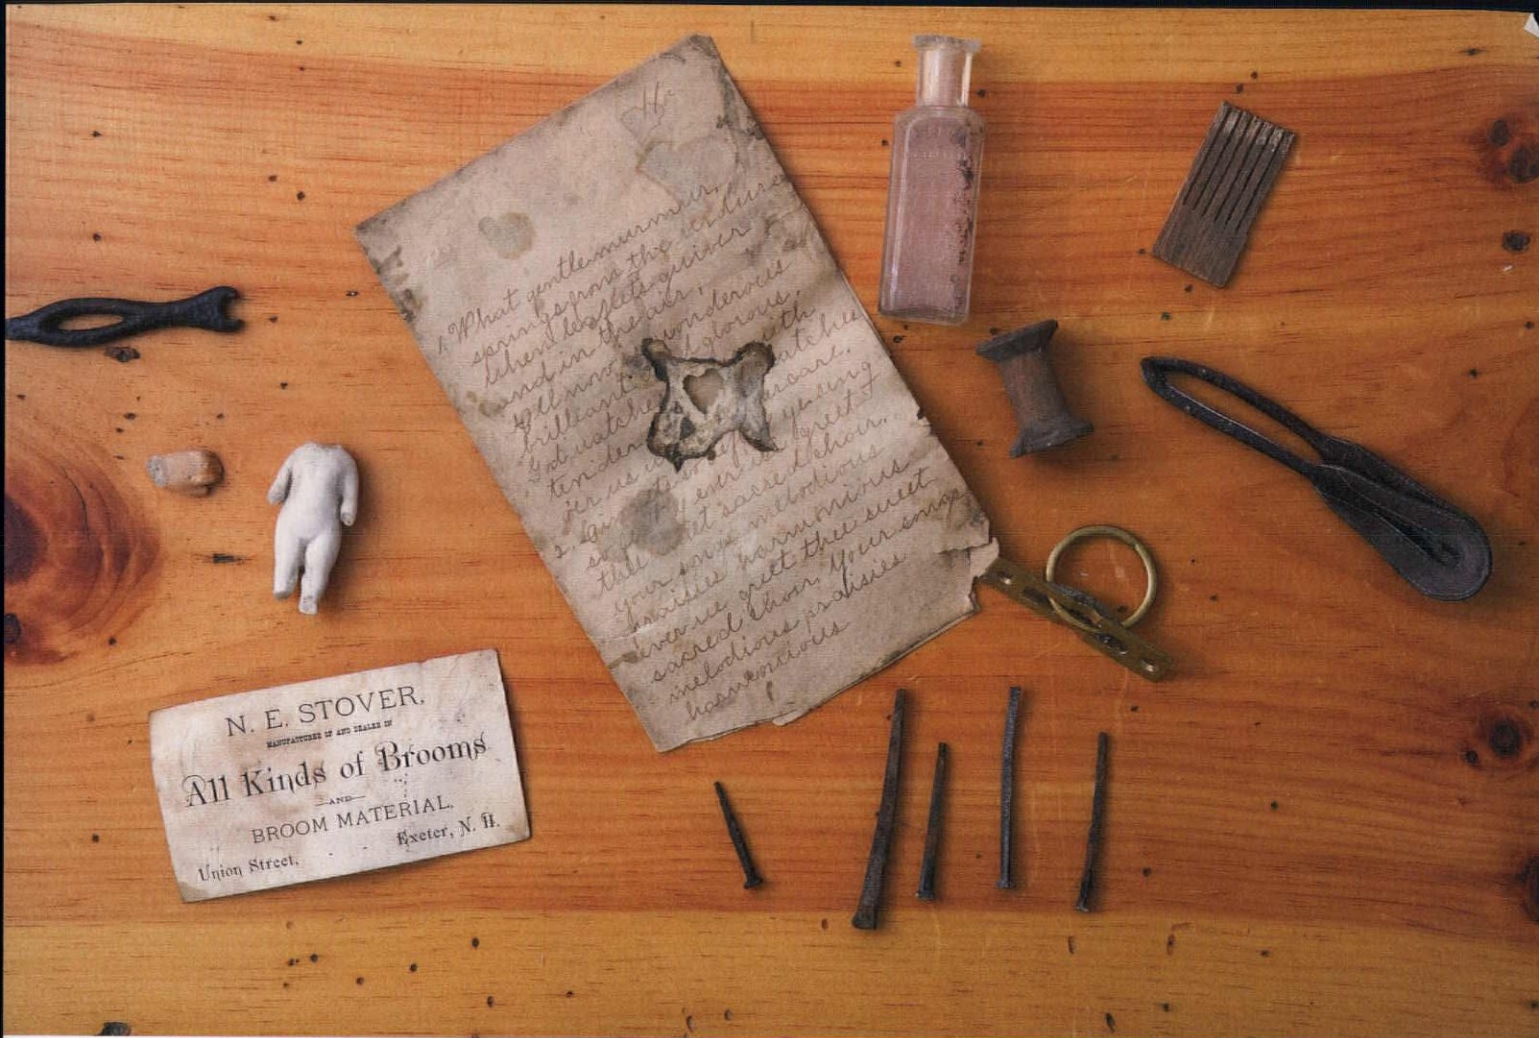 1. What gentle murmur,
springs from the verdure
When leaflets quiver
and in the air,
All now wonderous
brilliant glorous.
God watches with
tender watches
er us ercare.
2. yesing
so greet
thee et sacred choir.
your songs melodious
praises harmonious
ever we greet thee sweet
sacred choir, Your songs
melodious praisies
harmonious
N. E. STOVER,
MANUFACTURER OF AND DEALER IN
All Kinds of Brooms
—AND—
BROOM MATERIAL,
Union Street, - - Exeter, N. H.